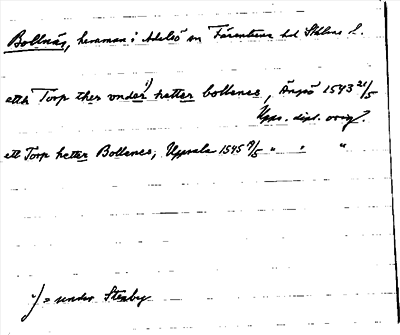 Bollnäs, herrman i Adelsö sn Färentuna hd Sthlms l.
etth Torp ther vnder ¹) hetter bollenes, Ängsö 1543 21/5
Upps. dipl. orig.
ett Torp hetter Bollenes, Uppsala 1545 7/5 " " "
¹) = under Stenby